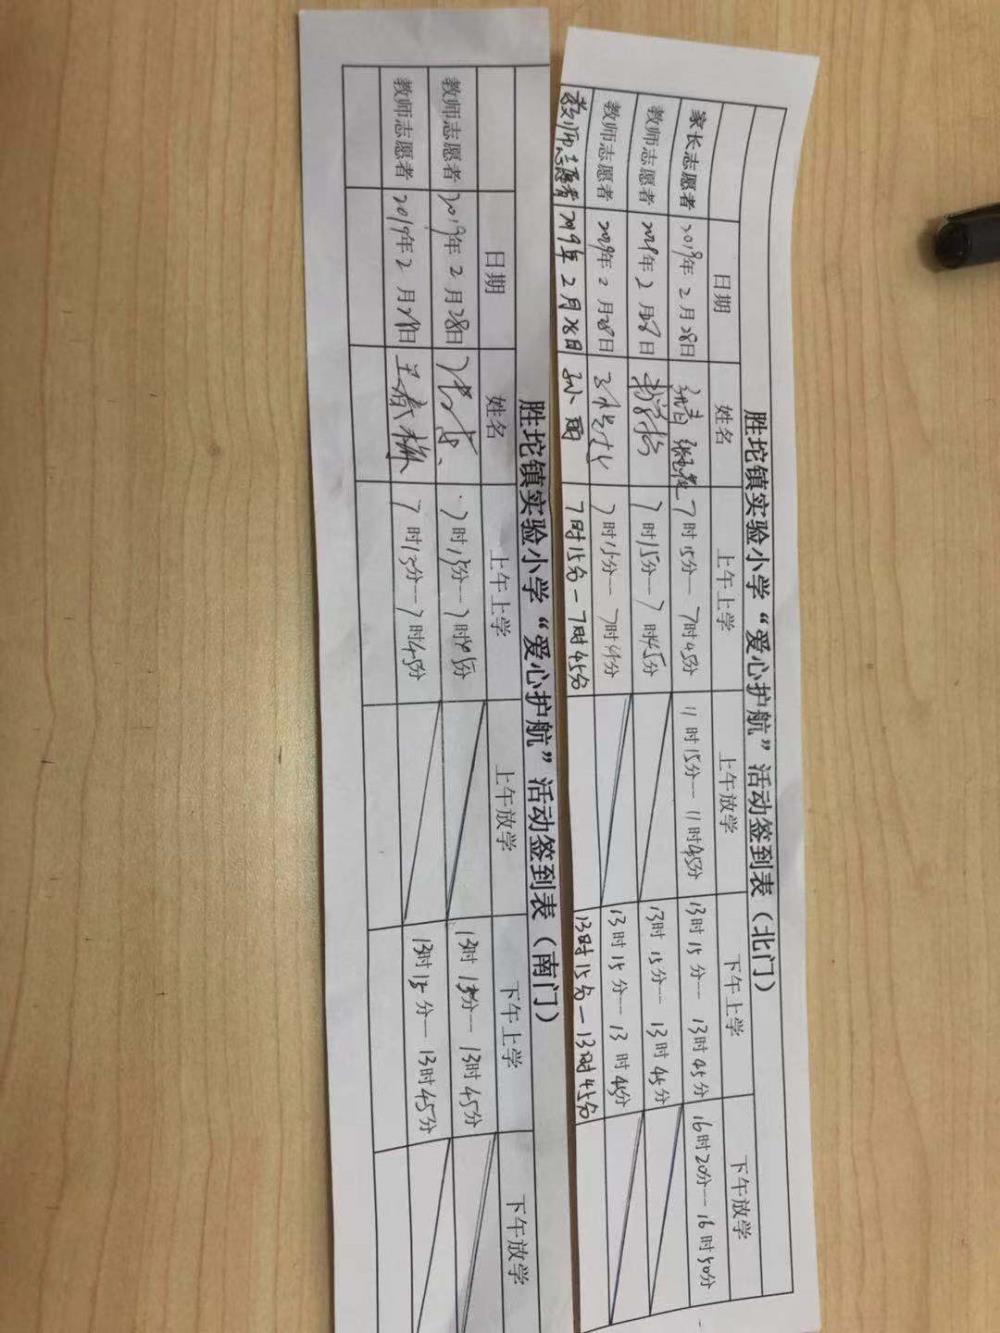 胜坨镇实验小学“爱心护航”活动签到表（北门）
日期 姓名 上午上学 上午放学 下午上学 下午放学
家长志愿者 2019年2月28日 7时15分--7时45分 11时15分--11时45分 13时15分--13时45分 16时20分--16时50分
教师志愿者 2019年2月28日 7时15分--7时45分 13时15分--13时45分
教师志愿者 2019年2月28日 7时15分--7时45分 13时15分--13时45分
教师志愿者 2019年2月28日 孙小雨 7时15分-7时45分 13时15分-13时45分
胜坨镇实验小学“爱心护航”活动签到表（南门）
日期 姓名 上午上学 上午放学 下午上学 下午放学
教师志愿者 2019年2月28日 7时15分--7时45分 13时15分--13时45分
教师志愿者 2019年2月28日 王春梅 7时15分--7时45分 13时15分--13时45分